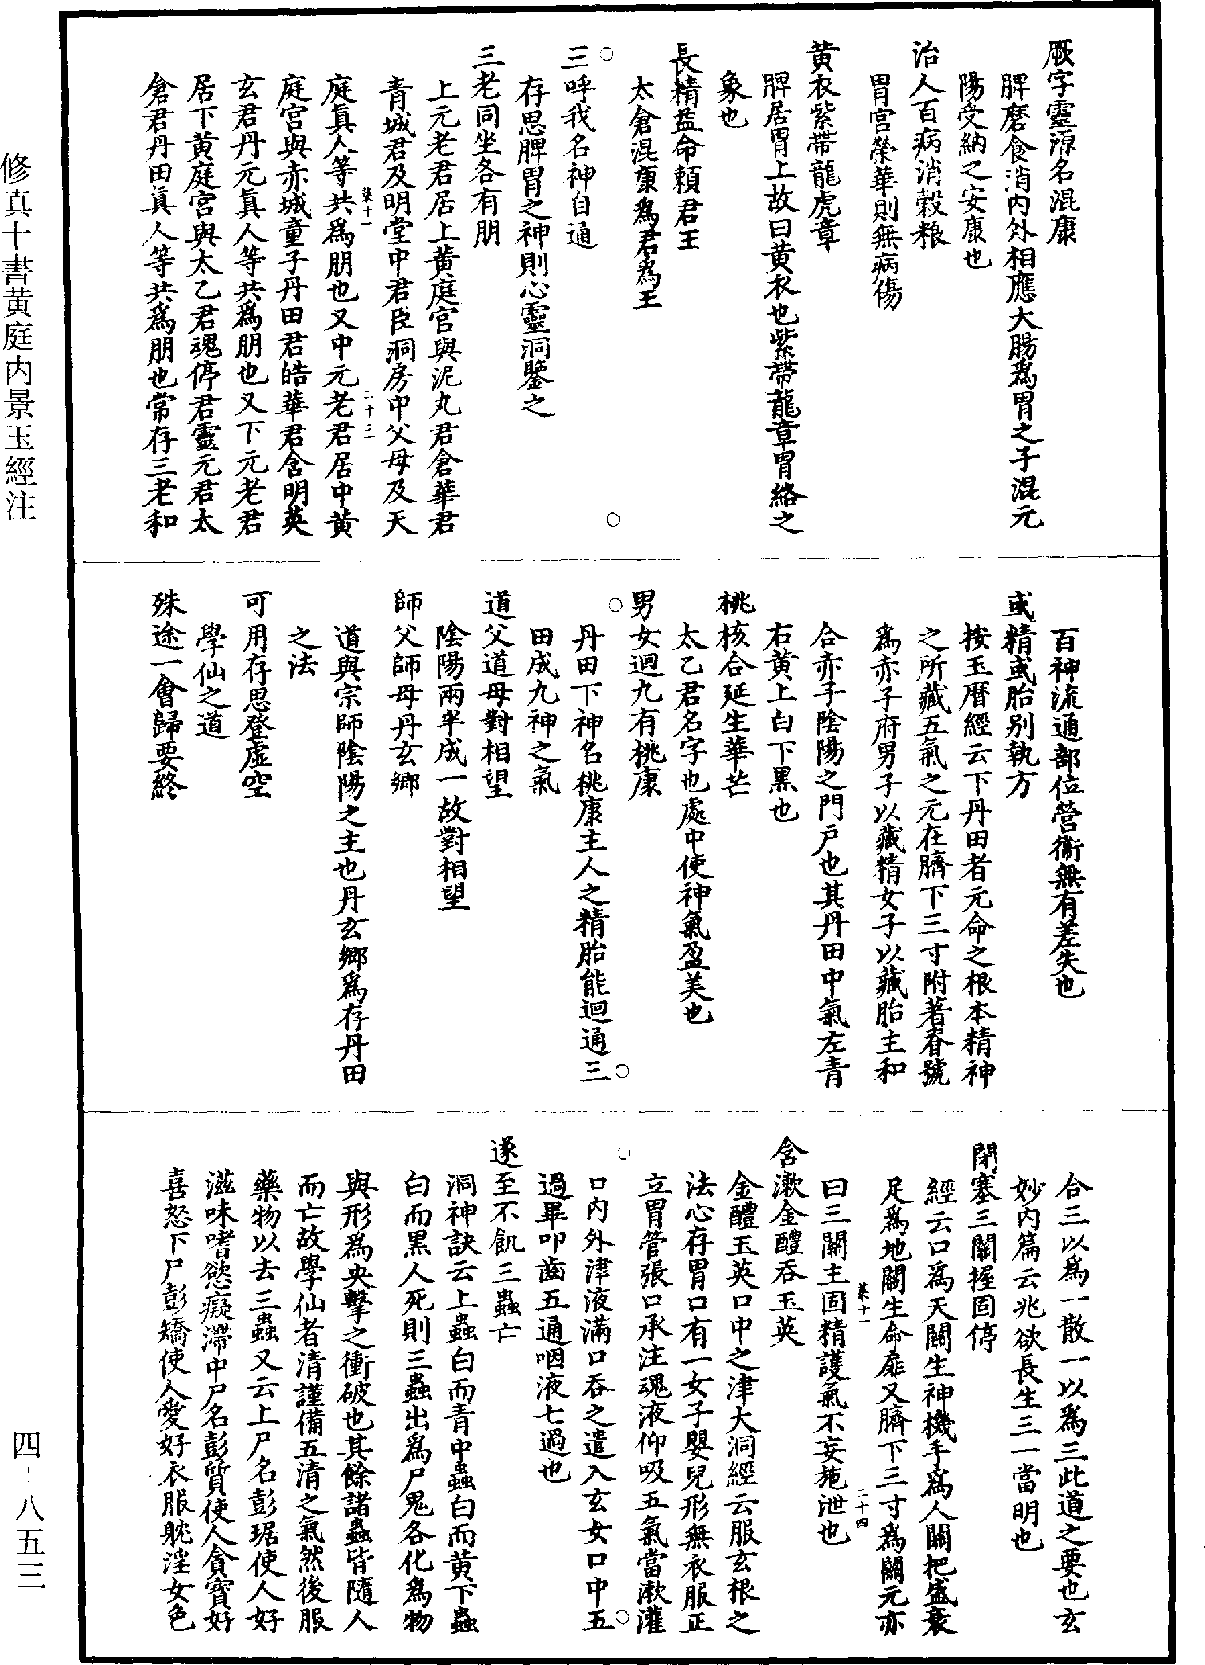 厥字靈源名混康
脾磨食消內外相應大腸爲胃之子混元
陽受納之安康也
治人百病消穀粮
胃宮榮華則無病傷
黃衣紫帶龍虎章
脾居胃上故曰黃衣也紫帶龍章胃絡之
象也
長精益命賴君王
太倉混康爲君爲王
三呼我名神自通
存思脾胃之神則心靈洞鑒之
三老同坐各有朋
上元老君居上黃庭宮與泥丸君倉華君
青城君及明堂中君臣洞房中父母及天
庭真人等共爲朋也又中元老君居中黃
庭宮與赤城童子丹田君皓華君含明英
玄君丹元真人等共爲朋也又下元老君
居下黃庭宮與太乙君魂停君靈元君太
倉君丹田真人等共爲朋也常存三老和
百神流通部位營衛無有差失也
或精或胎別執方
按玉曆經云下丹田者元命之根本精神
之所藏五氣之元在臍下三寸附著脊號
爲赤子府男子以藏精女子以藏胎主和
合赤子陰陽之門戶也其丹田中氣左青
右黃上白下黑也
桃核合延生華芒
太乙君名字也處中使神氣盈美也
男女迴九有桃康
丹田下神名桃康主人之精胎能迴通三
田成九神之氣
道父道母對相望
陰陽兩半成一故對相望
師父師母丹玄鄉
道與宗師陰陽之主也丹玄鄉爲存丹田
之法
可用存思登虛空
學仙之道
殊途一會歸要終
合三以爲一散一以爲三此道之要也玄
妙內篇云兆欲長生三一當明也
閉塞三關握固停
經云口爲天關生神機手爲人關把盛衰
足爲地關生命扉又臍下三寸爲關元亦
曰三關主固精護氣不妄施泄也
含漱金醴吞玉英
金醴玉英口中之津大洞經云服玄根之
法心存胃口有一女子嬰兒形無衣服正
立胃管張口承注魂液仰吸五氣當漱灌
口內外津液滿口吞之遣入玄女口中五
過畢叩齒五通咽液七過也
遂至不飢三蟲亡
洞神訣云上蟲白而青中蟲白而黃下蟲
白而黑人死則三蟲出爲尸鬼各化爲物
與形爲央擊之衝破也其餘諸蟲皆隨人
而亡故學仙者清謹備五清之氣然後服
藥物以去三蟲又云上尸名彭琚使人好
滋味嗜慾癡滯中尸名彭質使人貪寶好
喜怒下尸彭矯使人愛好衣服躭淫女色
菜十一
二十三
菜十一
二十四
修真十書黄庭内景玉經注
四-八五三